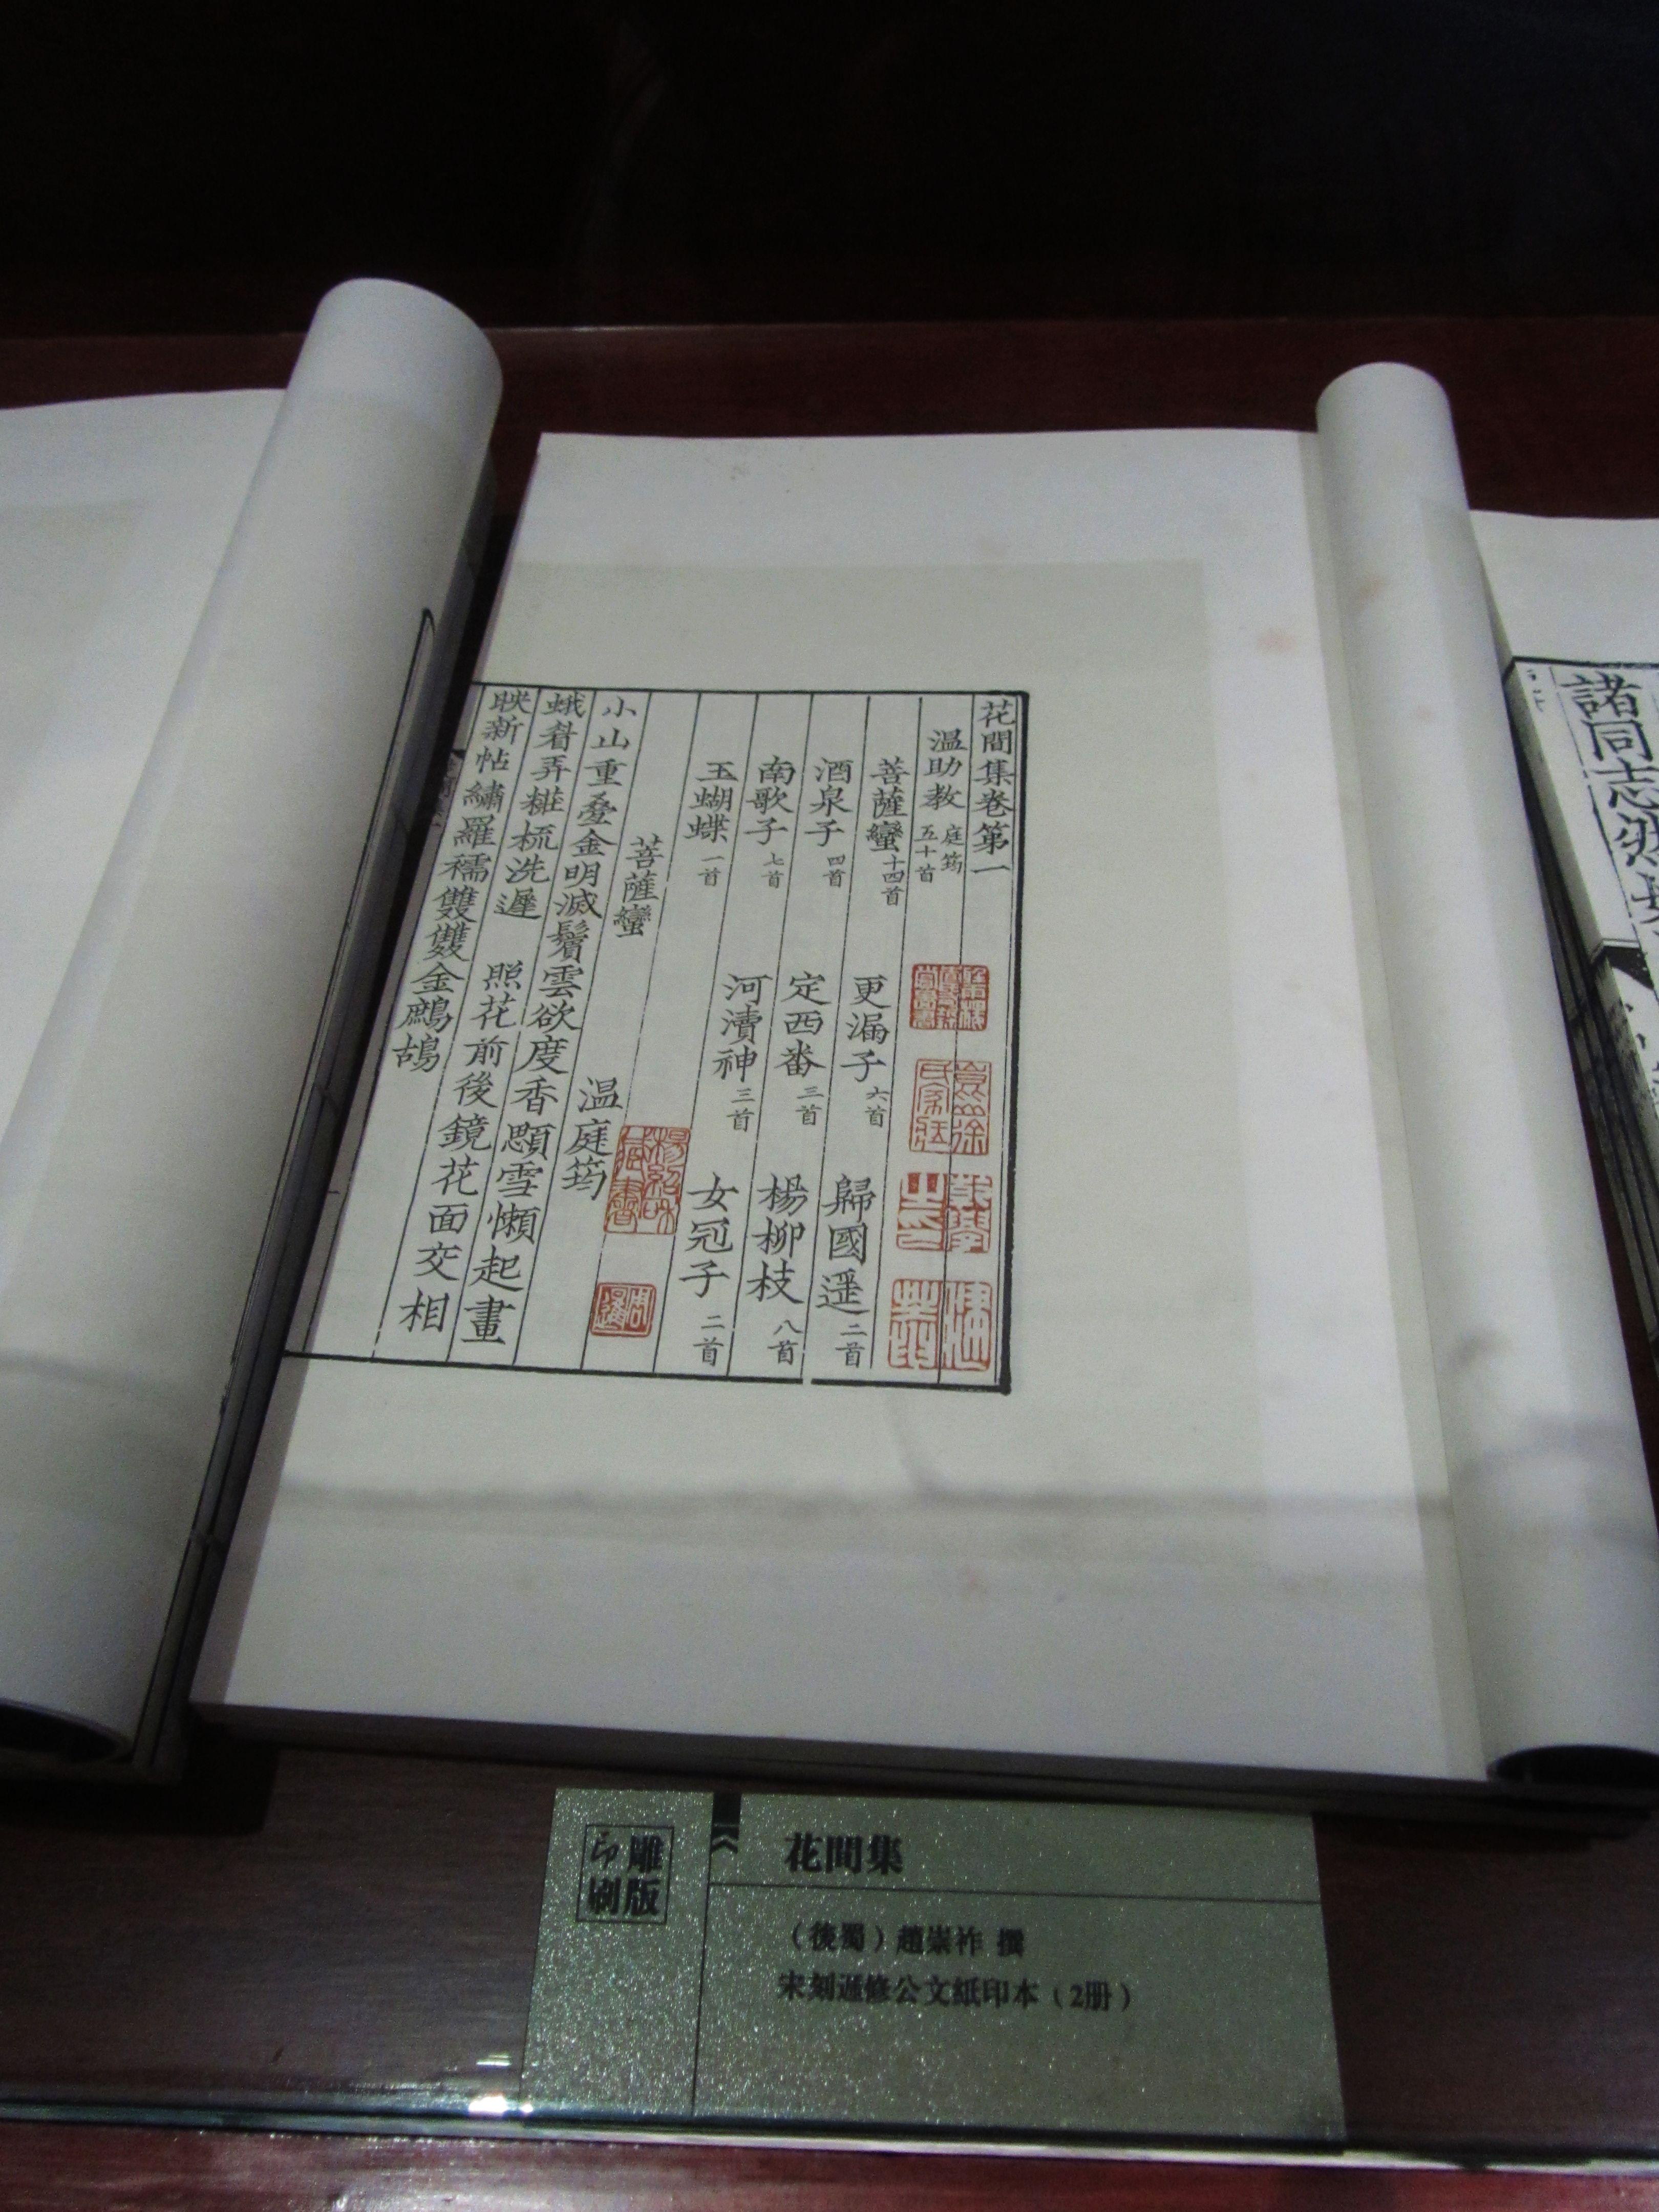 花間集卷第一
温助教 庭筠 五十首
菩薩蠻 十四首 更漏子 六首 歸國遥 二首
酒泉子 四首 定西番 三首 楊柳枝 八首
南歌子 七首 河瀆神 三首 女冠子 二首
玉蝴蝶 一首
菩薩蠻 温庭筠
小山重疊金明滅鬢雲欲度香顋雪懶起畫
蛾眉弄糚梳洗遲 照花前後鏡花面交相
映新帖繡羅襦雙雙金鷓鴣
楊紹和
藏書
周
暹
諸同志
雕版
印刷
花間集
（後蜀）趙崇祚 撰
宋刻遞修公文紙印本（2册）